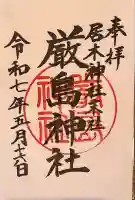 奉拝
居木神社末社
厳島神社
令和七年五月十六日